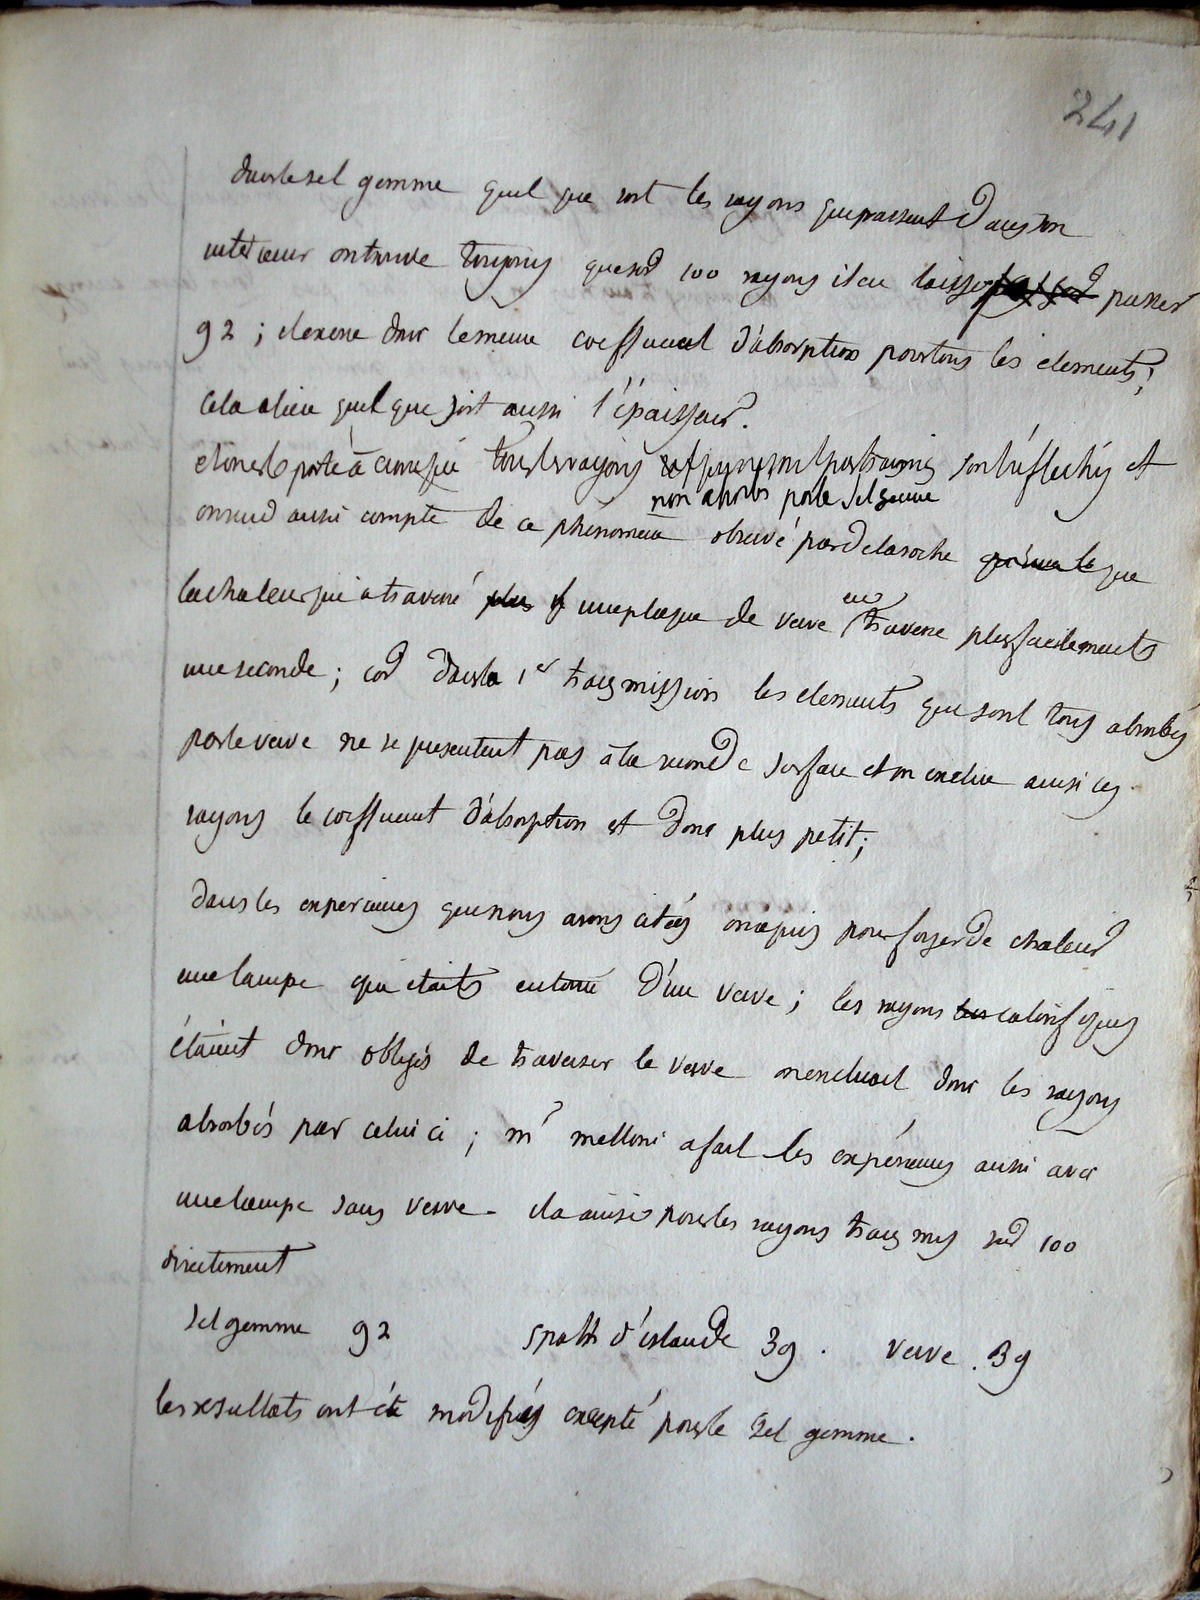 241
dans le sel gemme quel que soit les rayons qui passent dans son
interieur on trouve toujours que sur 100 rayons il en laisse passer
92 ; il exerce donc le meme coefficient d'absorption pour tous les elements ;
cela a lieu quel que soit aussi l'épaisseur.
et on est porté à croire que tous les rayons qui ne sont pas transmis sont réfléchis et
non absorbés par le sel gemme
on rend aussi compte de ce phénomène observé par delaroche que
la chaleur qui a traversé une plaque de verre en traverse plus facilement
une seconde ; car dans la 1er transmission les elements qui sont tous absorbés
par le verre ne se presentent pas à la seconde surface et on exclue aussi ces
rayons le coefficient d'absorption est donc plus petit ;
dans les experiences que nous avons citées on a pris pour foyer de chaleur
une lampe qui etait entouré d'un verre ; les rayons calorifiques
étaient donc obligés de traverser le verre on excluait donc les rayons
absorbés par celui ci ; mr melloni a fait les expériences aussi avec
une lampe sans verre - il a aussi pour les rayons transmis sur 100
directement
sel gemme 92 spath d'islande 39 . verre . 39
les resultats ont été modifiés excepté pour le sel gemme .